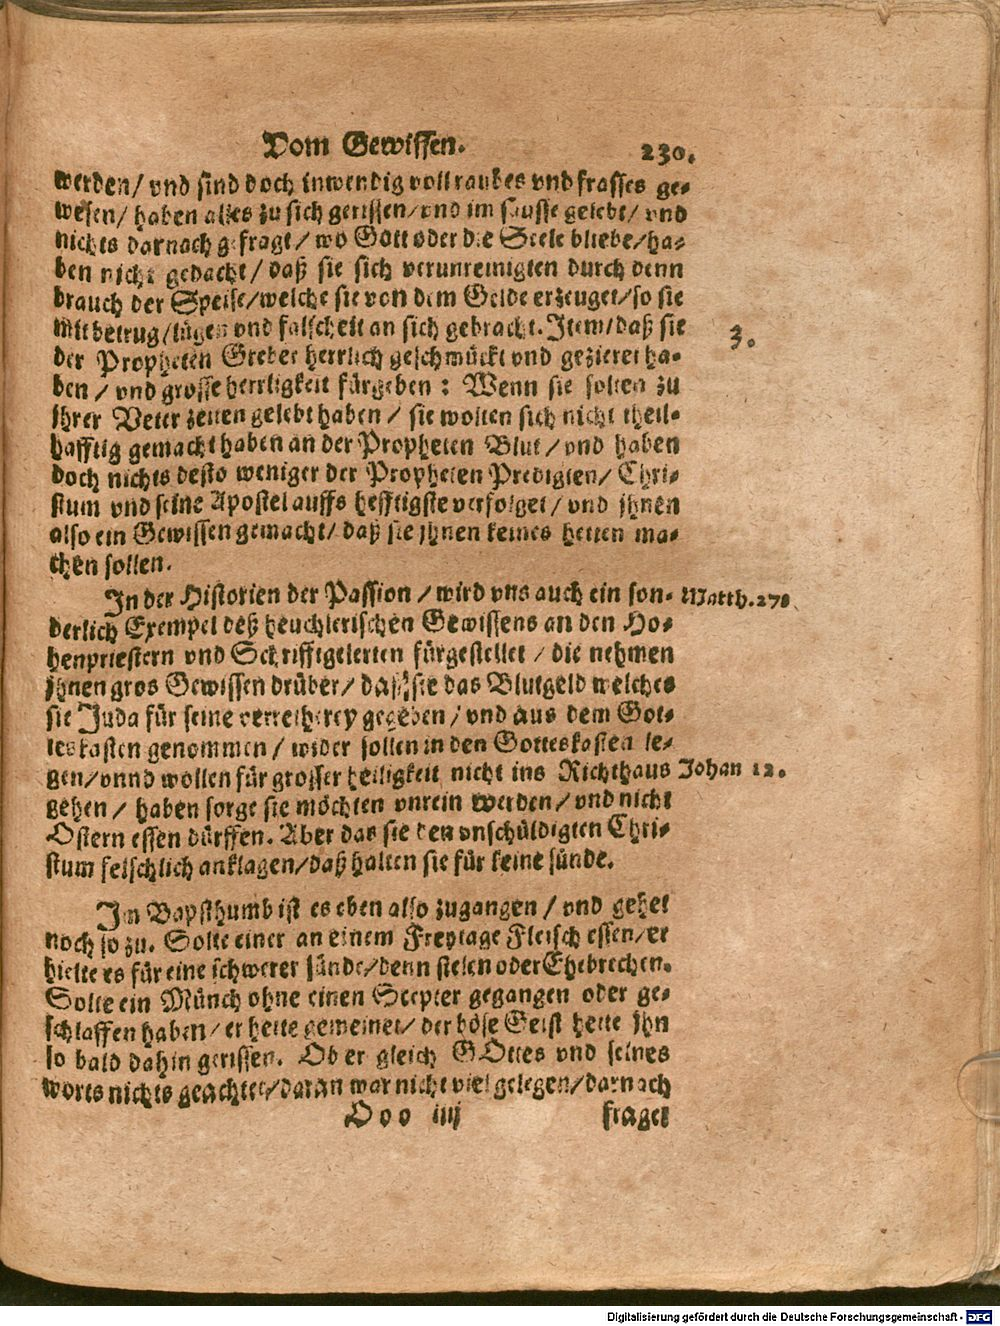 Vom Gewissen. 230.
werden/ vnd sind doch inwendig voll raubes vnd frasses ge-
wesen/ haben alles zu sich gerissen/ vnd im sausse gelebt/ vnd
nichts darnach gefragt/ wo Gott oder die Seele bliebe/ ha-
ben nicht gedacht/ daß sie sich verunreinigten durch denn
brauch der Speise/ welche sie von dem Gelde erzeuget/ so sie
mit betrug/ lügen vnd falscheit an sich gebracht. Item/ daß sie
3.
der Propheten Greber herrlich geschmückt vnd gezieret ha-
ben / vnd grosse herrligkeit fürgeben : Wenn sie solten zu
jhrer Veter zeiten gelebt haben / sie wolten sich nicht theil-
hafftig gemacht haben an der Propheten Blut / vnd haben
doch nichts desto weniger der Propheten Predigten/ Chri-
stum vnd seine Apostel auffs hefftigste verfolget/ vnd jhnen
also ein Gewissen gemacht/ daß sie jhnen keines hetten ma-
chen sollen.
In der Historien der Passion / wird vns auch ein son- Matth. 27.
derlich Exempel deß heuchlerischen Gewissens an den Ho-
henpriestern vnd Schrifftgelerten fürgestellet / die nehmen
jhnen gros Gewissen drüber/ daß sie das Blutgeld welches
sie Juda für seine verretherey gegeben / vnd aus dem Got-
teskasten genommen / wider sollen in den Gotteskasten le-
gen/ vnnd wollen für grosser heiligkeit nicht ins Richthaus Johan 12.
gehen / haben sorge sie möchten vnrein werden/ vnd nicht
Ostern essen dürffen. Aber das sie den vnschüldigten Chri-
stum felschlich anklagen/ daß halten sie für keine sünde.
Im Bapsthumb ist es eben also zugangen / vnd gehet
noch so zu. Solte einer an einem Freytage Fleisch essen/ er
hielte es für eine schwerer sünde/ denn stelen oder Ehebrechen.
Solte ein Münch ohne einen Scepter gegangen oder ge-
schlaffen haben/ er hette gemeinet/ der böse Geist hette jhn
so bald dahin gerissen. Ob er gleich GOttes vnd seines
worts nichts geachtet/ daran war nicht viel gelegen/ darnach
Ooo iiij fraget
Digitalisierung gefördert durch die Deutsche Forschungsgemeinschaft - DFG